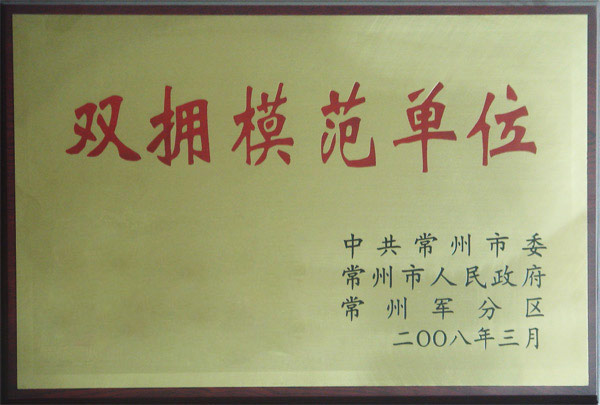 双拥模范单位
中共常州市委
常州市人民政府
常州军分区
二〇〇八年三月